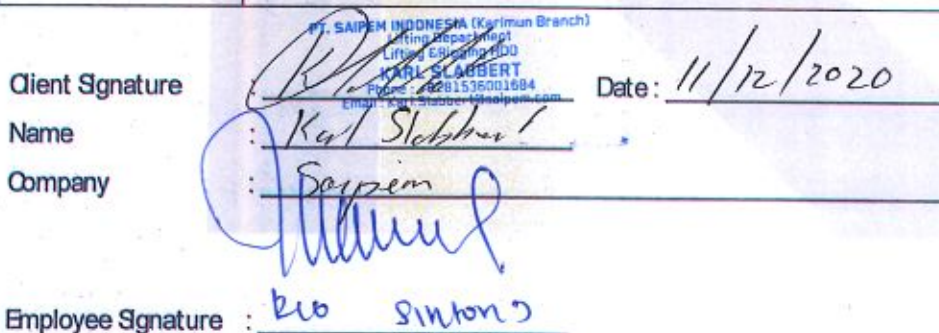 PT. SAIPEM INDONESIA (Karimun Branch)
Lifting Department
Lifting & Rigging HOD
KARL SLABBERT
Phone : 6281536001684
Email : Karl.Slabbert@saipem.com
Client Signature : Date : 11/12/2020
Name : Karl Slabbert
Company : Saipem
Employee Signature : Rio Sintong